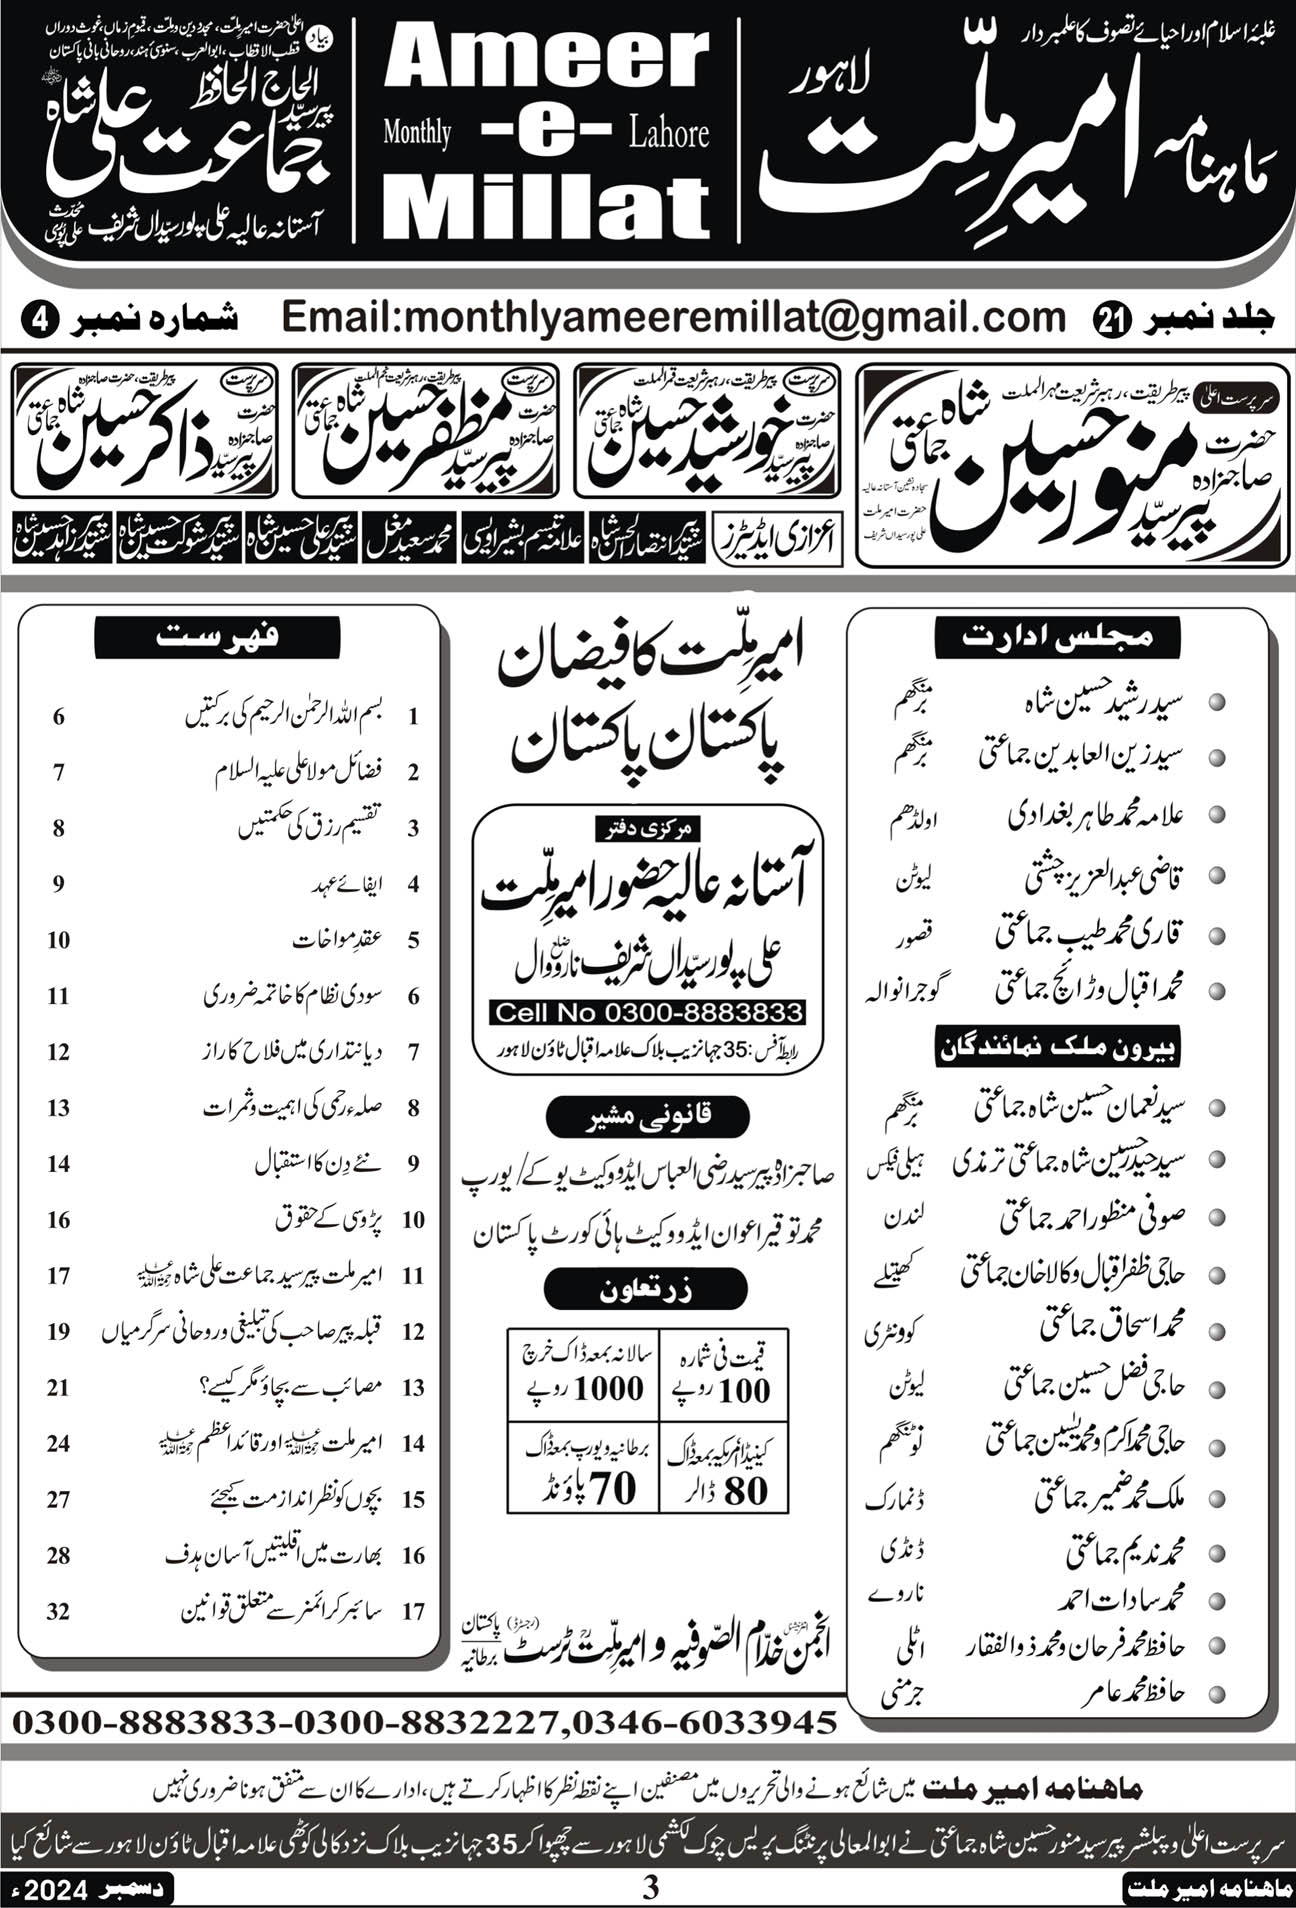 غلبۂ اسلام اور احیائے تصوف کا علمبردار
ماہنامہ امیرِ ملّت لاہور
Ameer
Monthly -e- Lahore
Millat
بیاد
اعلیٰ حضرت امیرِ ملّت، مجدد دین و ملّت، قیوم زماں، غوث دوراں
قطب الاقطاب، ابوالعرب، سنوسیٔ ہند، روحانی بانی پاکستان
الحاج الحافظ
پیر سیّد جماعت علی شاہ
محدّث علی پوری
آستانہ عالیہ علی پور سیّداں شریف
جلد نمبر 21
Email:monthlyameeremillat@gmail.com
شمارہ نمبر 4
سرپرست اعلیٰ
پیر طریقت، رہبر شریعت مہر الملت
حضرت صاحبزادہ پیر سیّد منور حسین شاہ جماعتی
سجادہ نشین آستانہ عالیہ
حضرت امیر ملت
علی پور سیداں شریف
سرپرست
پیر طریقت، رہبر شریعت قمر الملت
حضرت صاحبزادہ پیر سیّد خورشید حسین شاہ جماعتی
سرپرست
پیر طریقت، رہبر شریعت نجم الملت
حضرت صاحبزادہ پیر سیّد مظفر حسین شاہ جماعتی
سرپرست
پیر طریقت، حضرت صاحبزادہ
حضرت صاحبزادہ پیر سیّد ذاکر حسین شاہ جماعتی
اعزازی ایڈیٹرز
پیر سیّد انتصار الحسن شاہ
علامہ تبسم بشیر اویسی
محمد سعید مغل
پیر سیّد علی حسین شاہ
پیر سیّد شوکت حسین شاہ
پیر سیّد زاہد حسین شاہ
مجلس ادارت
سید رشید حسین شاہ برمنگھم
سید زین العابدین جماعتی برمنگھم
علامہ محمد طاہر بغدادی اولڈھم
قاضی عبدالعزیز چشتی لیوٹن
قاری محمد طیب جماعتی قصور
محمد اقبال وڑائچ جماعتی گوجرانوالہ
بیرون ملک نمائندگان
سید نعمان حسین شاہ جماعتی برمنگھم
سید حیدر حسین شاہ جماعتی ترمذی ہیلی فیکس
صوفی منظور احمد جماعتی لندن
حاجی ظفر اقبال و کالا خان جماعتی کھیتلے
محمد اسحاق جماعتی کوونٹری
حاجی فضل حسین جماعتی لیوٹن
حاجی محمد اکرم و محمد یٰسین جماعتی نوٹنگھم
ملک محمد ضمیر جماعتی ڈنمارک
محمد ندیم جماعتی ڈنڈی
محمد سادات احمد ناروے
حافظ محمد فرحان و محمد ذوالفقار اٹلی
حافظ محمد عامر جرمنی
امیرِ ملّت کا فیضان
پاکستان پاکستان
مرکزی دفتر
آستانہ عالیہ حضور امیرِ ملّت
علی پور سیّداں شریف ضلع نارووال
Cell No 0300-8883833
رابطہ آفس: 35 جہانزیب بلاک علامہ اقبال ٹاؤن لاہور
قانونی مشیر
صاحبزادہ پیر سید رضی العباس ایڈووکیٹ یو کے/یورپ
محمد توقیر اعوان ایڈووکیٹ ہائی کورٹ پاکستان
زر تعاون
قیمت فی شمارہ
100 روپے
سالانہ بمعہ ڈاک خرچ
1000 روپے
کینیڈا امریکہ بمعہ ڈاک
80 ڈالر
برطانیہ و یورپ بمعہ ڈاک
70 پاؤنڈ
انجمن خدّام الصّوفیہ و امیرِ ملّت ٹرسٹ (رجسٹرڈ) پاکستان برطانیہ
فہرست
1 بسم اللہ الرحمٰن الرحیم کی برکتیں 6
2 فضائل مولا علی علیہ السلام 7
3 تقسیم رزق کی حکمتیں 8
4 ایفائے عہد 9
5 عقدِ مواخات 10
6 سودی نظام کا خاتمہ ضروری 11
7 دیانتداری میں فلاح کا راز 12
8 صلہء رحمی کی اہمیت و ثمرات 13
9 نئے دِن کا استقبال 14
10 پڑوسی کے حقوق 16
11 امیر ملت پیر سید جماعت علی شاہ رحمۃ اللہ علیہ 17
12 قبلہ پیر صاحب کی تبلیغی و روحانی سرگرمیاں 19
13 مصائب سے بچاؤ مگر کیسے؟ 21
14 امیر ملت رحمۃ اللہ علیہ اور قائد اعظم رحمۃ اللہ علیہ 24
15 بچوں کو نظر انداز مت کیجئے 27
16 بھارت میں اقلیتیں آسان ہدف 28
17 سائبر کرائمز سے متعلق قوانین 32
0300-8883833-0300-8832227,0346-6033945
ماہنامہ امیر ملت میں شائع ہونے والی تحریروں میں مصنفین اپنے نقطہ نظر کا اظہار کرتے ہیں، ادارے کا ان سے متفق ہونا ضروری نہیں
سرپرست اعلیٰ و پبلشر پیر سید منور حسین شاہ جماعتی نے ابوالمعالی پرنٹنگ پریس چوک لکشمی لاہور سے چھپوا کر 35 جہانزیب بلاک نزد کالی کوٹھی علامہ اقبال ٹاؤن لاہور سے شائع کیا
ماہنامہ امیر ملت
3
دسمبر 2024ء